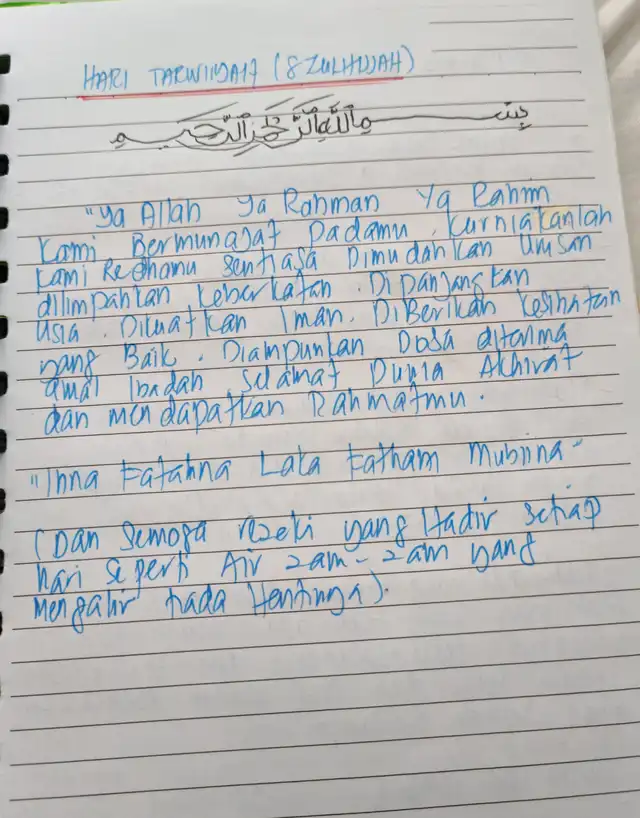 HARI TARWIIYAH (8 ZULHIJJAH)
بسم الله الرحمن الرحيم
"Ya Allah Ya Rahman Ya Rahim
Kami Bermunajat Padamu. Kurniakanlah
Kami Redhamu Sentiasa Dimudahkan Urusan
dilimpahkan Keberkatan. Dipanjangkan
Usia. Dikuatkan Iman. DiBerikan Kesihatan
yang Baik. Diampunkan Dosa diterima
amal Ibadah. Selamat Dunia Akhirat
dan mendapatkan Rahmatmu.
"Inna Fatahna Laka Fatham Mubiina"
(Dan Semoga rezeki yang Hadir setiap
hari seperti Air zam-zam yang
mengalir tiada Hentinya).